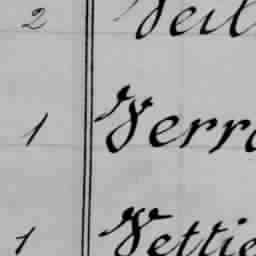 2 Veil
1 Verr
1 Vettie